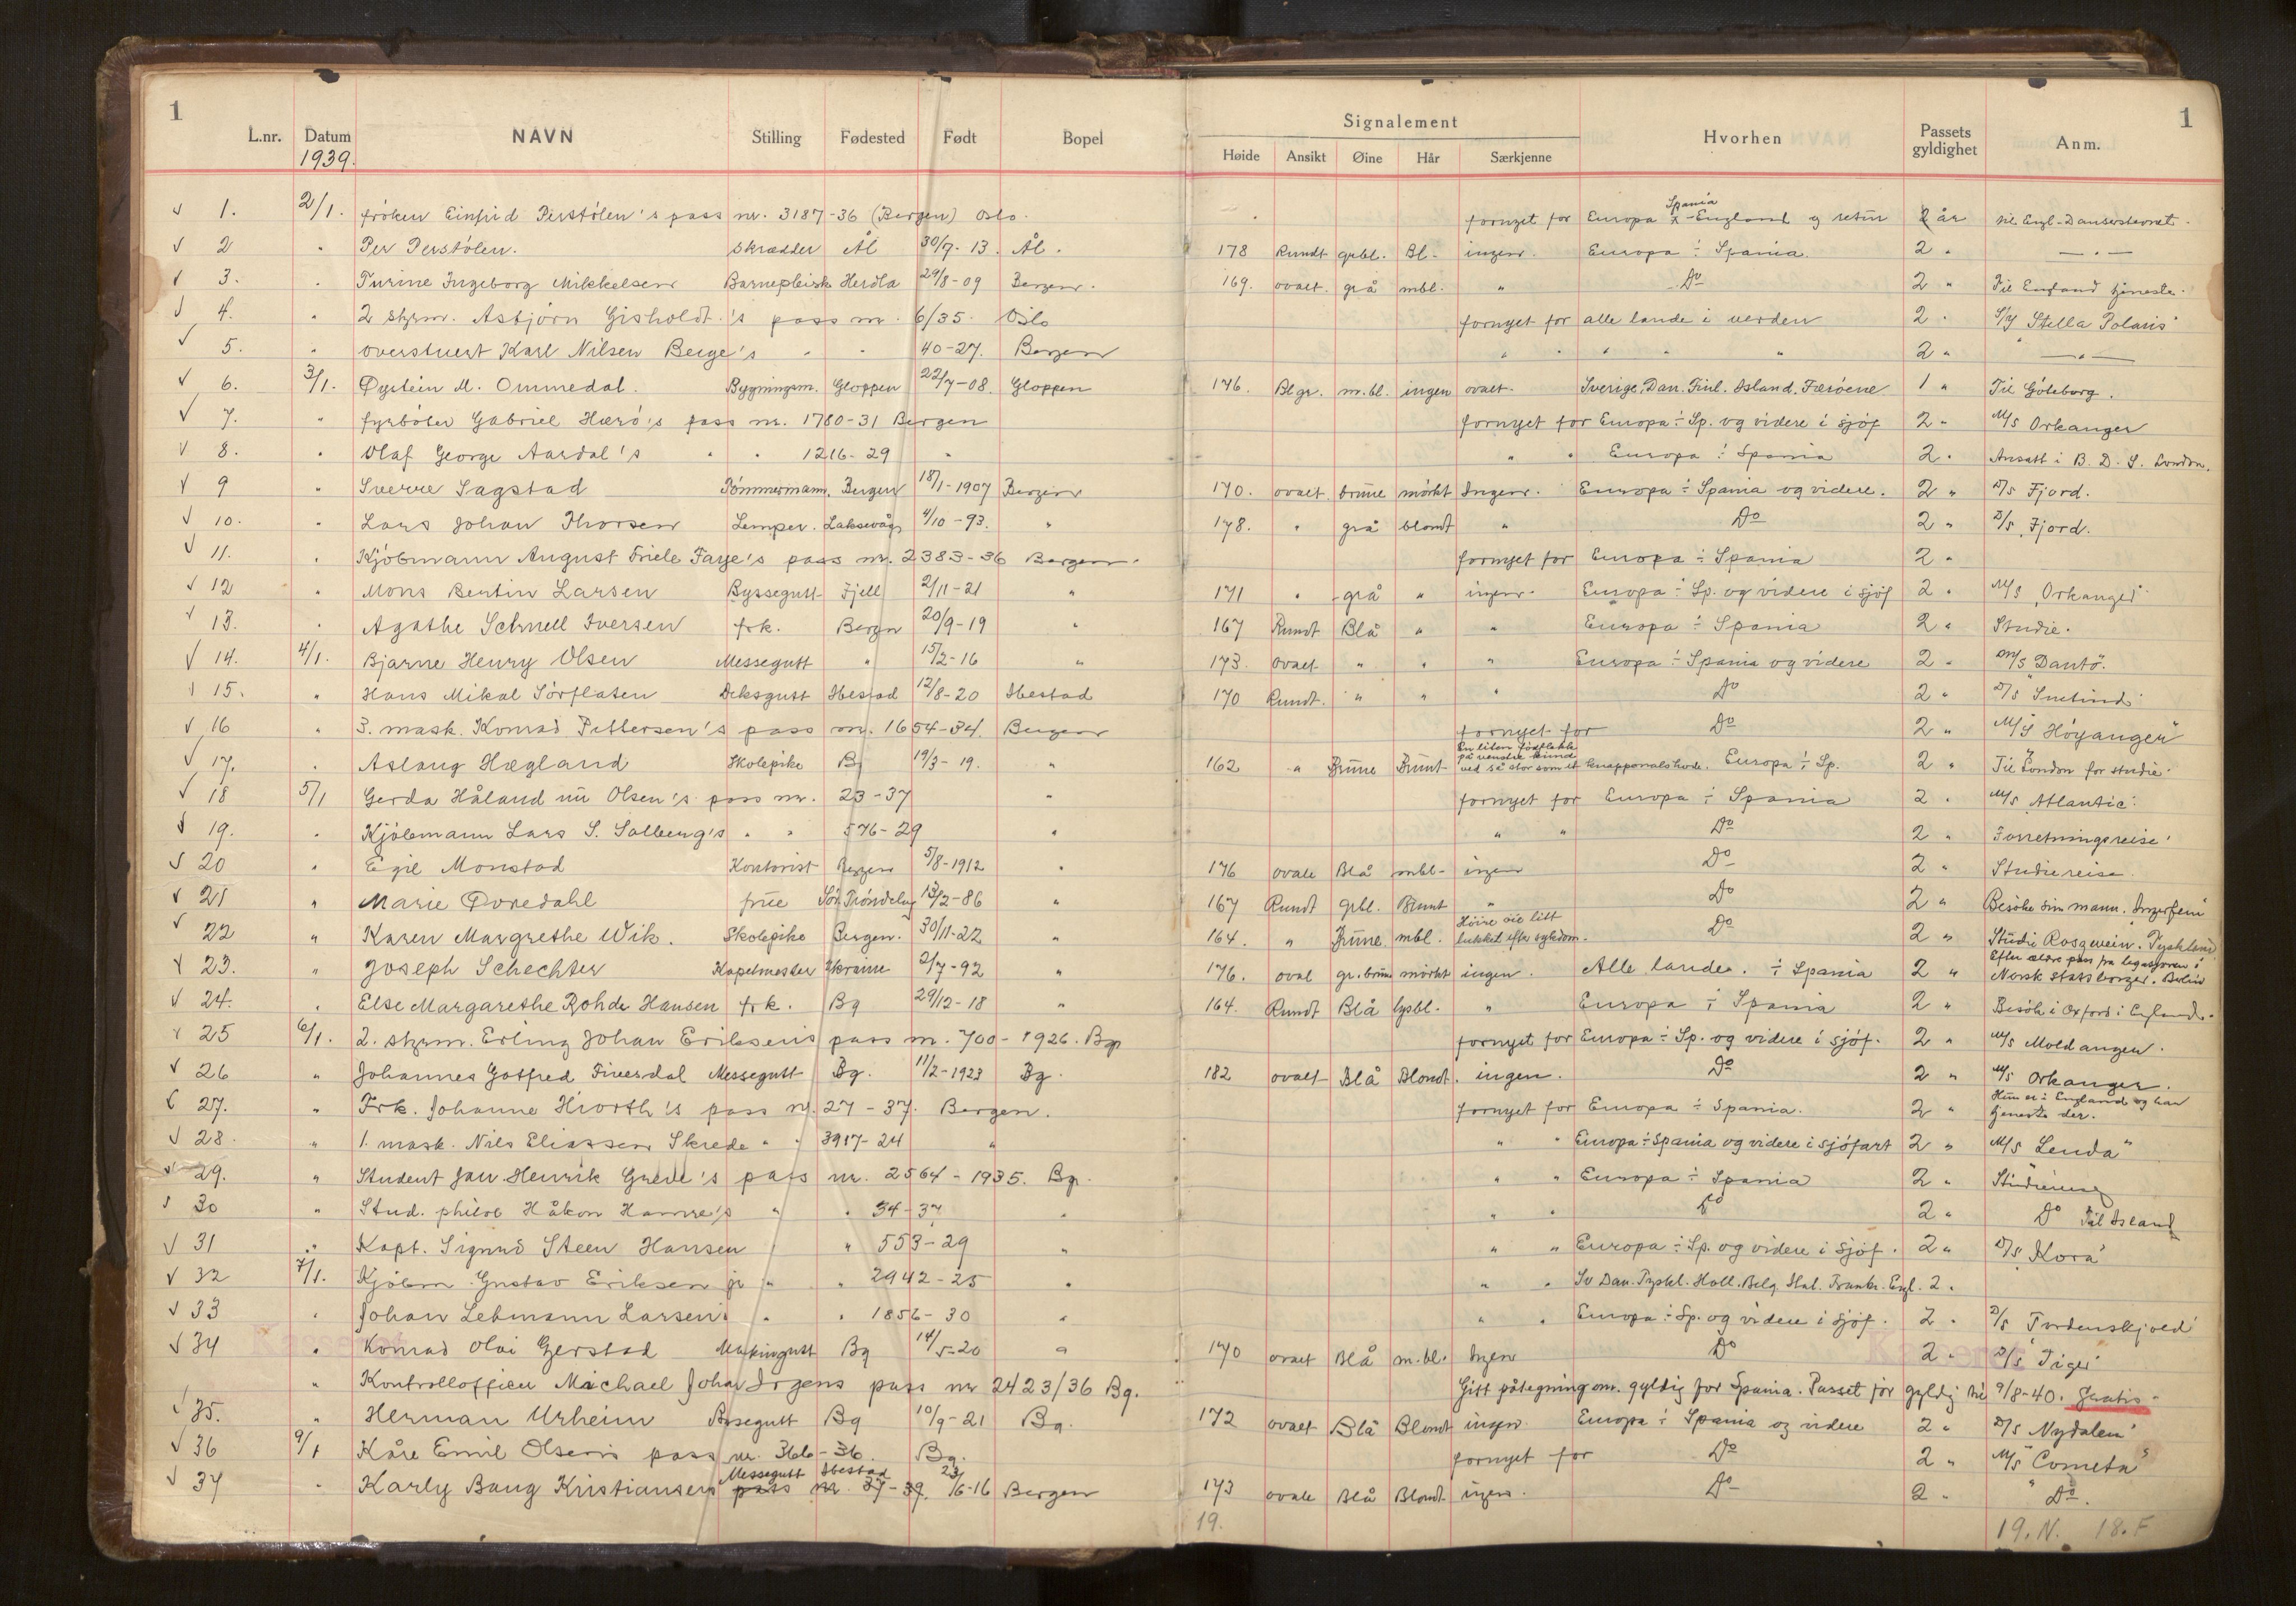 1 1
Signalement
L.nr. Datum NAVN Stilling Fødested Født Bopel Høide Ansikt Øine Hår Særkjenne Hvorhen Passets gyldighet Anm.
1939.
1. 2/1. frøken Einfrid Perstølen's pass nr. 3187-36 (Bergen) Oslo. fornyet for Europa ÷ Spania - England og retur 2 år til Engl.
2 " Per Perstølen. Skrædder Ål 30/7-13. Ål. 178 Rundt grbl. Bl- ingen. Europa ÷ Spania. 2 " — " —
3. " Turine Ingeborg Mikkelsen Barnepleiersk Herdla 29/8-09 Bergen. 169. ovalt. grå mbl. " Do 2 " Til England tjeneste.
4. " 2 styrm. Asbjørn Gisholdt's pass nr. 6/35. Oslo fornyet for alle lande i verden 2 " S/Y Stella Polaris
5. " overstuert Karl Nilsen Berge's " " 40-27. Bergen " " " " " 2 " — " —
6. 3/1. Øystein M. Ommedal. Bygningsm. Gloppen 22/7-08. Gloppen 176. Blgr. m.bl. ingen ovalt. Sverige, Dan. Finl. Island. Færøene 1 " Til Göteborg.
7. " fyrbøter Gabriel Hærø's pass nr. 1780-31 Bergen fornyet for Europa ÷ Sp. og videre i sjöf 2 " M/S Orkanger
8. " Olaf George Aardal's " " 1216-29 " " " Europa ÷ Spania 2 " Ansatt i B. D. S. London.
9 " Sverre Sagstad Tömmermann. Bergen 18/1-1907 Bergen 170. ovalt. brune mörkt Ingen. Europa ÷ Spania og videre. 2 " D/S Fjord.
10. " Lars Johan Thorsen Lemper. Laksevåg 4/10-93. " 178. " grå blondt " Do 2 " D/S Fjord.
11. " Kjöbmann August Friele Faye's pass nr. 2383-36 Bergen. fornyet for Europa ÷ Spania 2 "
12 " Mons Bentin Larsen Byssegutt Fjell 2/11-21 " 171 " grå " ingen. Europa ÷ Sp. og videre i sjöf 2 " M/S "Orkanger"
13. " Agathe Schnell Iversen frk. Bergen 20/9-19 " 167 Rundt Blå " " Europa ÷ Spania 2 " Studie.
14. 4/1. Bjarne Henry Olsen Messegutt " 15/2-16 " 173. ovalt " " " Europa ÷ Spania og videre 2 " M/S Dantö".
15. " Hans Mikal Sörflaten Deksgutt Ibestad 12/8-20 Ibestad 170 Rundt. " " " Do 2 " D/S "Snetind"
16 " 3. mask. Konrad Pettersen's pass nr. 1654-34. Bergen fornyet for Do 2 " M/S Höyanger"
17. " Aslaug Hægland Skolepike Bg 19/3-19. " 162 " Brune Brunt En liten födflekk på venstre kind ved så stor som et knappenålshode. Europa ÷ Sp. 2 " Til London for studie.
18 5/1 Gerda Håland nu Olsen's pass nr. 23-37 " fornyet for Europa ÷ Spania 2 " M/S Atlantic.
19. " Kjöbmann Lars S. Solberg's " " 576-29 " " " Do 2 " Forretningsreise.
20 " Egil Monstad Kontorist Bergen 5/8-1912 " 176 ovalt Blå mbl. ingen Do 2 " Studiereise.
21 " Marie Dvredahl frue Sör Tröndelag 13/2-86 " 167 Rundt grbl. Brunt " Do 2 " Besöke sin mann.
22 " Karen Margrethe Wik. Skolepike Bergen. 30/11-22 " 164. " Brune mbl. Höire øie litt lukket efter sykdom. Do 2 " Studie Tyskland
23. " Joseph Schechter Kapelmester Ukraine 2/7-92 " 176. oval gr.brune mörkt ingen. Alle lande. ÷ Spania 2 " Efter ældre pass fra legasjonen i Berlin Norsk statsborger.
24. " Else Margarethe Rohde Hansen frk. Bg 29/12-18 " 164. Rundt Blå lysbl. " Europa ÷ Spania 2 " Besök i Oxford i England.
25 6/1. 2. styrm. Erling Johan Eriksens pass nr. 700-1926. Bg fornyet for Europa ÷ Sp. og videre i sjöf. 2 " M/S Moldanger.
26 " Johannes Gotfred Tiverdal Messegutt Bg. 11/2-1923 Bg. 182 ovalt Blå Blondt. ingen. Do 2 " M/S Orkanger.
27. " Frk. Johanne Hiorth's pass nr. 27-37. Bergen. fornyet for Europa ÷ Spania. 2 " Hun er i England og har tjeneste der.
28. " 1. mask. Nils Eliassen Skrede " " 3917-24 " " " Europa ÷ Spania og videre i sjöfart 2 " M/S Lenda"
29. " Student Jan Henrik Greve's pass nr. 2564-1935. Bg. " " Europa ÷ Spania 2 "
30 " Stud. philos Håkon Hamre's " " 34-37 " " " Do 2 " Do Til Island
31 " Kapt. Sigurd Steen Hansen " 553-29 " " " Europa ÷ Sp. og videre i sjöf. 2 " D/S "Kora"
32 7/1. Kjöbm. Gustav Eriksen jr " " 2942-25 " " " Sv Dan. Tyskl. Holl. Belg. Ital. Frankr. Engl. 2 "
33 " Johan Lehmann Larsen's " " 1856-30 " " " Europa ÷ Sp. og videre i sjöf. 2 " D/S Tordenskjold
34 " Konrad Olai Gjerstad Maskingutt Bg 14/5-20 " 170 ovalt Blå m.bl. Ingen Do 2 " D/S "Tiger"
" Kontrolloffiser Michael Johan Irgens pass nr 2423/36 Bg. Gitt påtegning om. gyldig for Spania. Passet för gyldig til 9/8-40. Gratis
35. " Herman Urheim Byssegutt Bg 10/9-21 Bg. 172 ovalt Blå Blondt ingen. Europa ÷ Spania og videre 2 " D/S Nydalen"
36 9/1 Kåre Emil Olsens pass nr. 366-36. Bg. fornyet for Do 2 " M/S "Cometa"
37 " Karly Bang Kristiansens Messegutt Ibestad pass nr 37-37. 23/6-16 Bergen 173 ovalt Blå Blondt ingen. Do 2 " " Do.
19. 19. N. 18. F